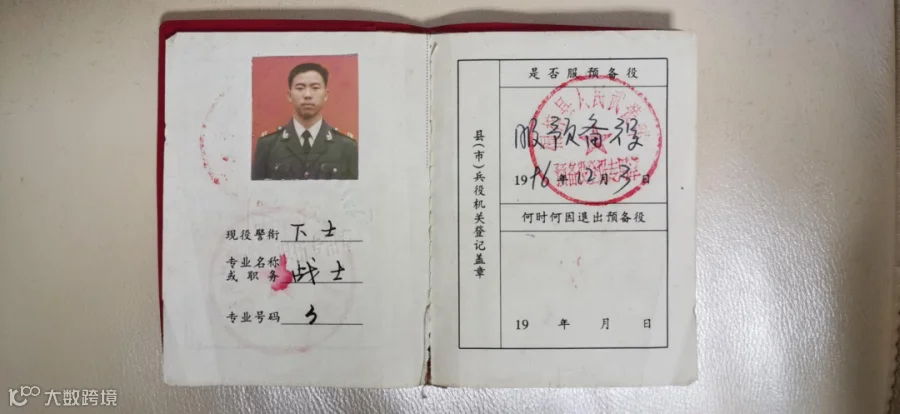 现役警衔 下士
专业名称
或职务 战士
专业号码 3
县(市)兵役机关登记盖章
是否服预备役
服预备役
1996年12月3日
何时何因退出预备役
19 年 月 日
大数跨境